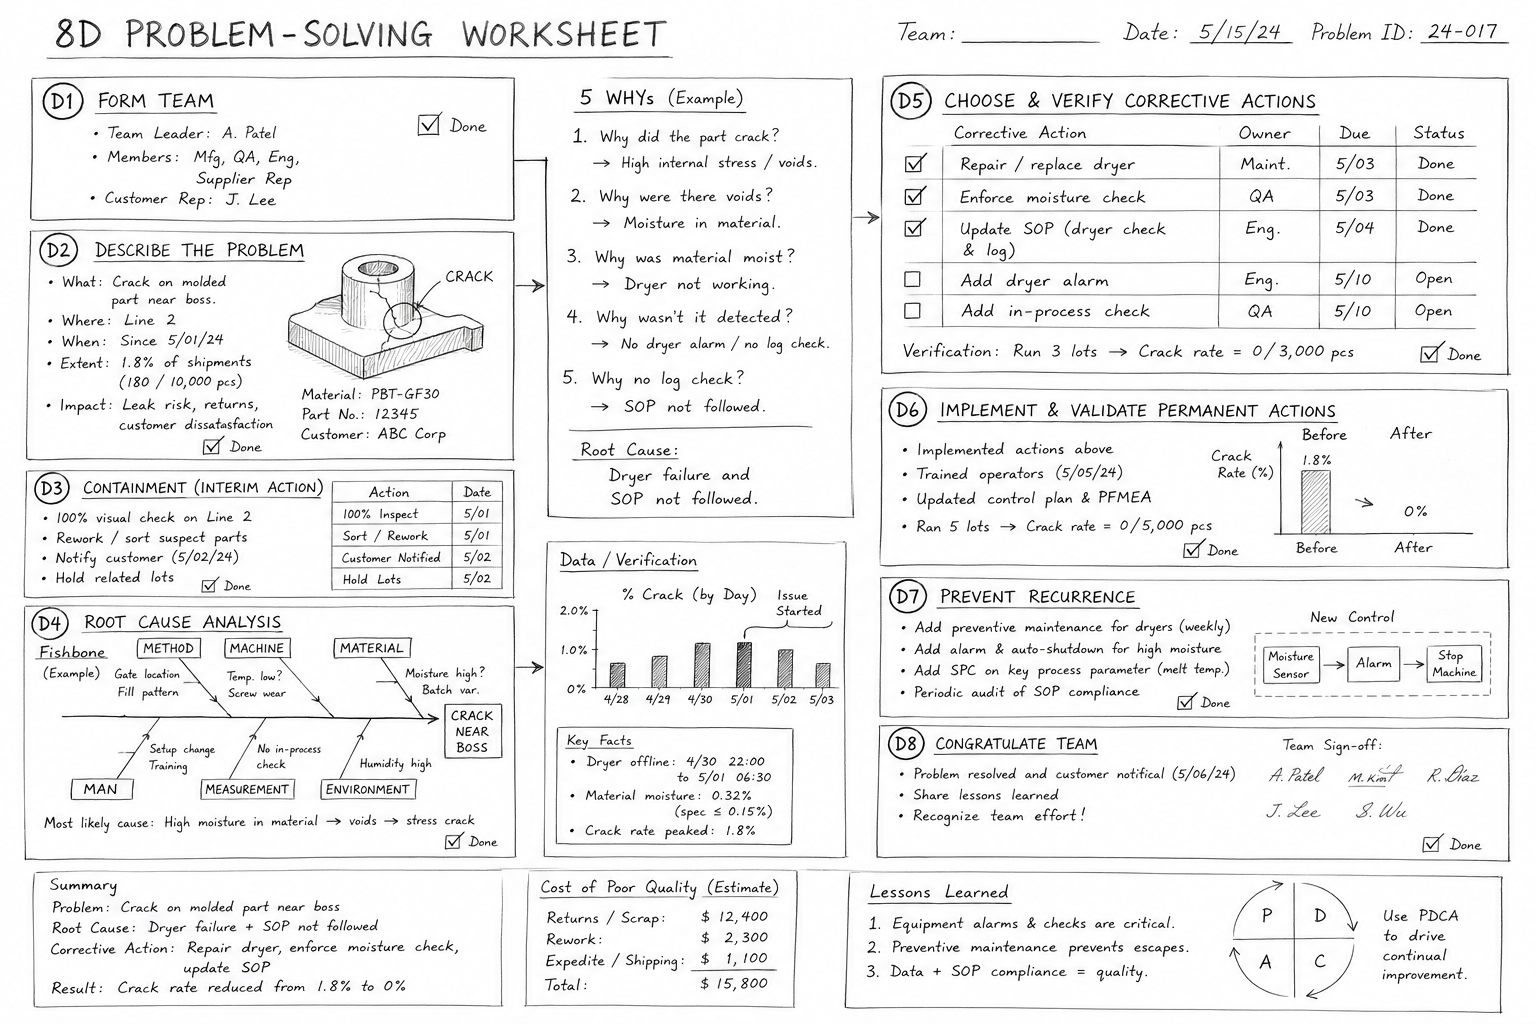 8D PROBLEM-SOLVING WORKSHEET
Team: Date: 5/15/24 Problem ID: 24-017
D1 FORM TEAM
• Team Leader: A. Patel
• Members: Mfg, QA, Eng,
Supplier Rep
• Customer Rep: J. Lee
Done
D2 DESCRIBE THE PROBLEM
• What: Crack on molded
part near boss.
• Where: Line 2
• When: Since 5/01/24
• Extent: 1.8% of shipments
(180 / 10,000 pcs)
• Impact: Leak risk, returns,
customer dissatasfaction
Done
CRACK
Material: PBT-GF30
Part No.: 12345
Customer: ABC Corp
D3 CONTAINMENT (INTERIM ACTION)
• 100% visual check on Line 2
• Rework / sort suspect parts
• Notify customer (5/02/24)
• Hold related lots
Done
Action Date
100% Inspect 5/01
Sort / Rework 5/01
Customer Notified 5/02
Hold Lots 5/02
D4 ROOT CAUSE ANALYSIS
Fishbone
(Example)
METHOD MACHINE MATERIAL
Gate location
Fill pattern
Temp. low?
Screw wear
Moisture high?
Batch var.
CRACK
NEAR
BOSS
Setup change
Training
No in-process
check
Humidity high
MAN MEASUREMENT ENVIRONMENT
Most likely cause: High moisture in material → voids → stress crack
Done
5 WHYs (Example)
1. Why did the part crack?
→ High internal stress / voids.
2. Why were there voids?
→ Moisture in material.
3. Why was material moist?
→ Dryer not working.
4. Why wasn't it detected?
→ No dryer alarm / no log check.
5. Why no log check?
→ SOP not followed.
Root Cause:
Dryer failure and
SOP not followed.
Data / Verification
% Crack (by Day)
Issue
Started
2.0%
1.0%
0%
4/28 4/29 4/30 5/01 5/02 5/03
Key Facts
• Dryer offline: 4/30 22:00
to 5/01 06:30
• Material moisture: 0.32%
(spec ≤ 0.15%)
• Crack rate peaked: 1.8%
D5 CHOOSE & VERIFY CORRECTIVE ACTIONS
Corrective Action Owner Due Status
Repair / replace dryer Maint. 5/03 Done
Enforce moisture check QA 5/03 Done
Update SOP (dryer check Eng. 5/04 Done
& log)
Add dryer alarm Eng. 5/10 Open
Add in-process check QA 5/10 Open
Verification: Run 3 lots → Crack rate = 0/3,000 pcs
Done
D6 IMPLEMENT & VALIDATE PERMANENT ACTIONS
• Implemented actions above
• Trained operators (5/05/24)
• Updated control plan & PFMEA
• Ran 5 lots → Crack rate = 0/5,000 pcs
Done
Before After
Crack
Rate (%)
1.8%
0%
Before After
D7 PREVENT RECURRENCE
• Add preventive maintenance for dryers (weekly)
• Add alarm & auto-shutdown for high moisture
• Add SPC on key process parameter (melt temp.)
• Periodic audit of SOP compliance
Done
New Control
Moisture
Sensor
Alarm
Stop
Machine
D8 CONGRATULATE TEAM
• Problem resolved and customer notifical (5/06/24)
• Share lessons learned
• Recognize team effort!
Team Sign-off:
A. Patel R. Diaz
J. Lee S. Wu
Done
Summary
Problem: Crack on molded part near boss
Root Cause: Dryer failure + SOP not followed
Corrective Action: Repair dryer, enforce moisture check,
update SOP
Result: Crack rate reduced from 1.8% to 0%
Cost of Poor Quality (Estimate)
Returns / Scrap: $ 12,400
Rework: $ 2,300
Expedite / Shipping: $ 1,100
Total: $ 15,800
Lessons Learned
1. Equipment alarms & checks are critical.
2. Preventive maintenance prevents escapes.
3. Data + SOP compliance = quality.
P D
A C
Use PDCA
to drive
continual
improvement.